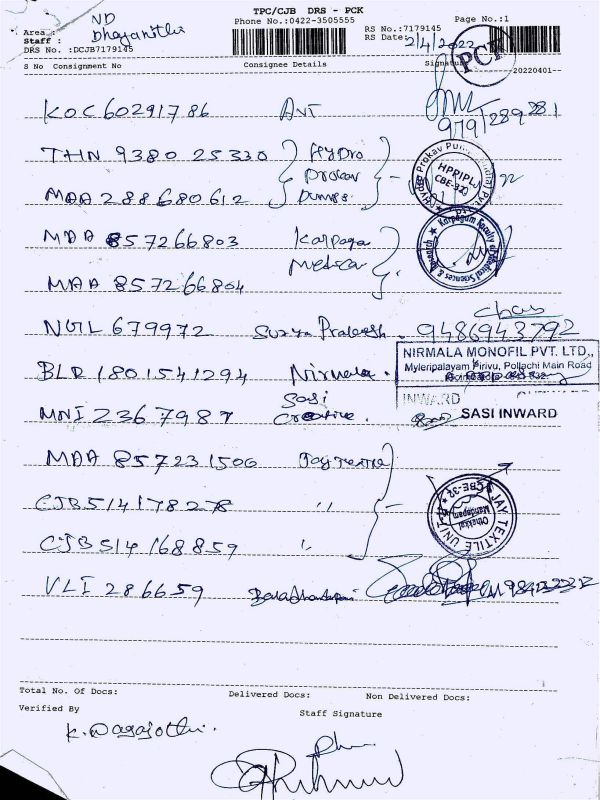 TPC/CJB DRS - PCK
Phone No.:0422-3505555
Page No.:1
RS No.:7179145
RS Date: 2/4/2022
Area : ND
Staff :
DRS No. :DCJB7179145
PCK
S No Consignment No Consignee Details Signature 20220401-
KOC 60291786 AVT
979/289281
THN 9380 25330 Hydro
Prokav
MAA 288680612 Pumps
HPRIPL
CBE-32
MAA 857266803 Karpaga
Medical
MAA 857266804
Karpagam Faculty of Medical Sciences & Research
NGL 679972 Surya Prakash. 9486943792
NIRMALA MONOFIL PVT. LTD.,
Myleripalayam Pirivu, Pollachi Main Road
BLR 1801541294 Nirmala.
INWARD
Sasi
MNI 2367987 Creative.
SASI INWARD
MAA 857231506 Jay Textile
CJB514178278 "
JAY TEXTILE UNIT
Othakkal Mandapam
CBE-32
CJB514168859 "
VLI 286659
Total No. Of Docs: Delivered Docs: Non Delivered Docs:
Verified By
Staff Signature